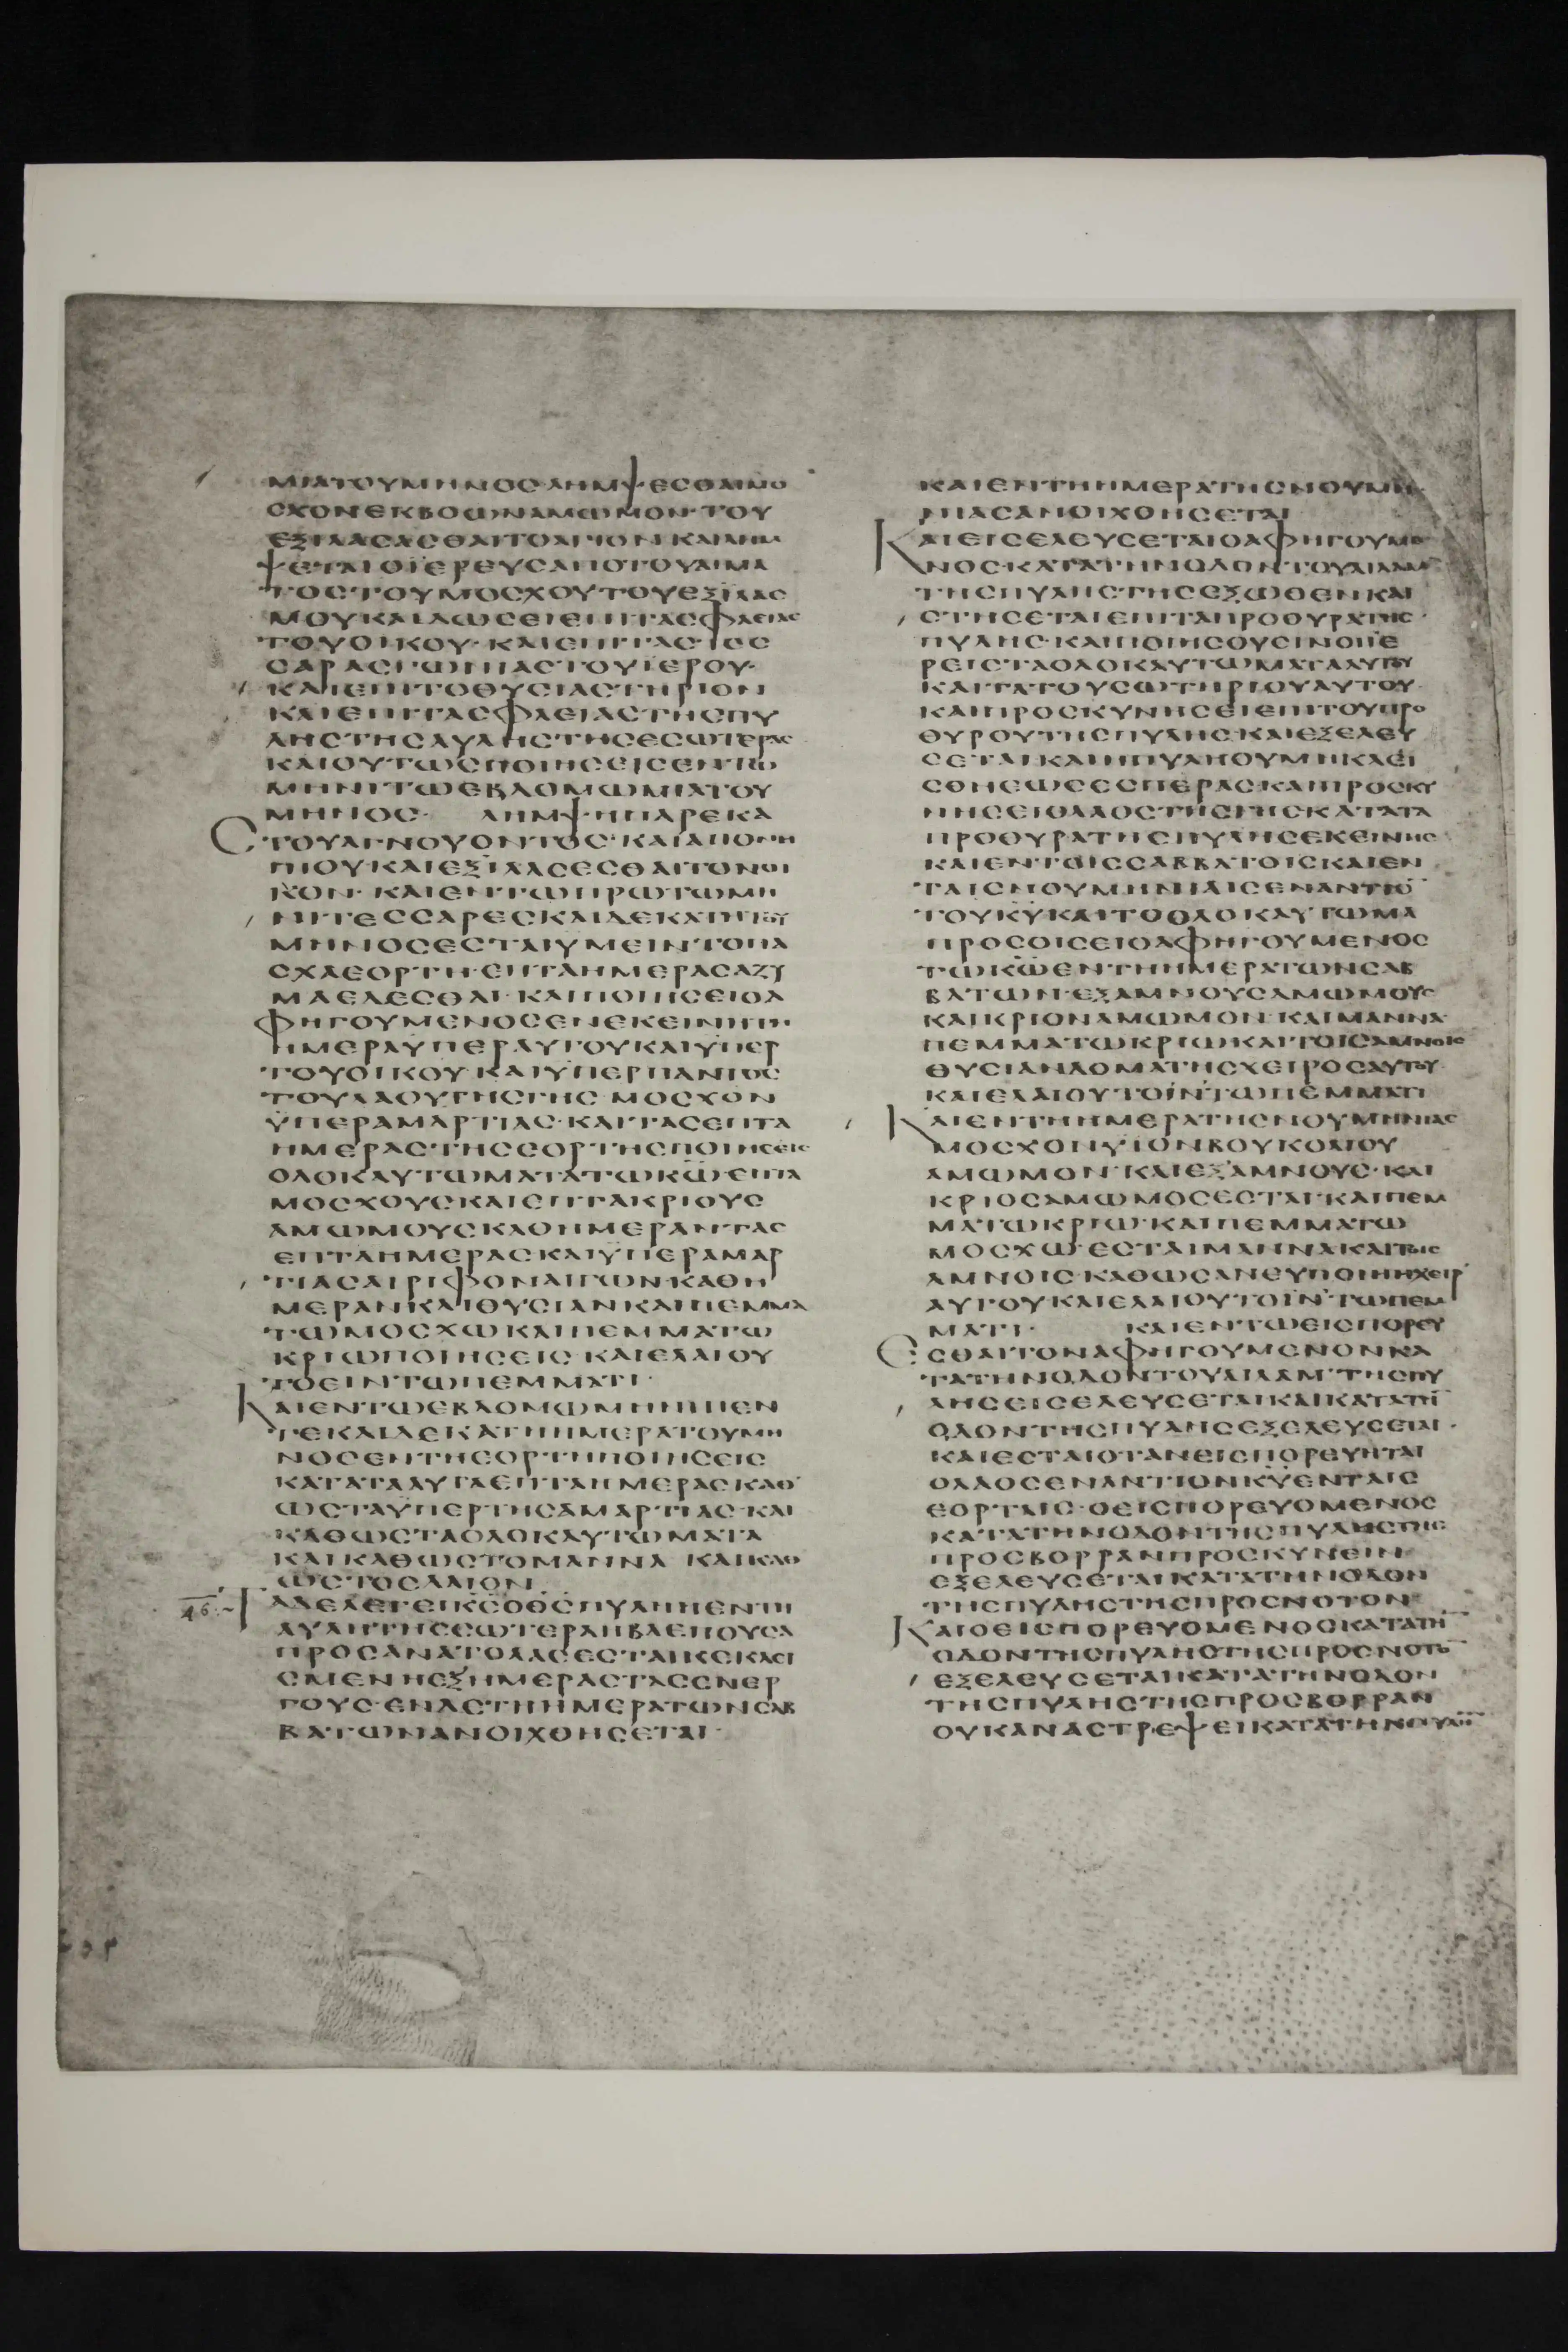 ΜΙΑΤΟΥΜΗΝΟCΛΗΜΨΕCΘΑΙΜΟ
CΧΟΝΕΚΒΟΩΝΑΜΩΜΟΝ·ΤΟΥ
ΕΞΙΛΑCΑCΘΑΙΤΟΑΓΙΟΝ·ΚΑΙΛΗΜ
ΨΕΤΑΙΟΪΕΡΕΥCΑΠΟΤΟΥΑΙΜΑ
ΤΟCΤΟΥΜΟCΧΟΥΤΟΥΕΞΙΛΑC
ΜΟΥΚΑΙΔΩCΕΙΕΠΙΤΑCΦΛΕΙΑC
ΤΟΥΟΙΚΟΥ·ΚΑΙΕΠΙΤΑCΤΕC
CΑΡΑCΓΩΝΙΑCΤΟΥΪΕΡΟΥ·
ΚΑΙΕΠΙΤΟΘΥCΙΑCΤΗΡΙΟΝ
ΚΑΙΕΠΙΤΑCΦΛΕΙΑCΤΗCΠΥ
ΛΗCΤΗCΑΥΛΗCΤΗCΕCΩΤΕΡΑC
ΚΑΙΟΥΤΩCΠΟΙΗCΕΙCΕΝΤΩ
ΜΗΝΙΤΩΕΒΔΟΜΩΜΙΑΤΟΥ
ΜΗΝΟC· ΛΗΜΨΗΠΑΡΕΚΑ
CΤΟΥΑΓΝΟΥΟΝΤΟC·ΚΑΙΑΠΟΝΗ
ΠΙΟΥ·ΚΑΙΕΞΙΛΑCΕCΘΑΙΤΟΝΟΙ
ΚΟΝ·ΚΑΙΕΝΤΩΠΡΩΤΩΜΗ
ΝΙΤΕCCΑΡΕCΚΑΙΔΕΚΑΤΗΤΟΥ
ΜΗΝΟCΕCΤΑΙΥΜΕΙΝΤΟΠΑ
CΧΑΕΟΡΤΗ·ΕΠΤΑΗΜΕΡΑCΑΖΥ
ΜΑΕΔΕCΘΑΙ·ΚΑΙΠΟΙΗCΕΙΟΑ
ΦΗΓΟΥΜΕΝΟCΕΝΕΚΕΙΝΗΤΗ
ΗΜΕΡΑΥΠΕΡΑΥΤΟΥΚΑΙΥΠΕΡ
ΤΟΥΟΙΚΟΥ·ΚΑΙΥΠΕΡΠΑΝΤΟC
ΤΟΥΛΑΟΥΤΗCΓΗC·ΜΟCΧΟΝ
ΫΠΕΡΑΜΑΡΤΙΑC·ΚΑΙΤΑCΕΠΤΑ
ΗΜΕΡΑCΤΗCΕΟΡΤΗCΠΟΙΗCΕΙC
ΟΛΟΚΑΥΤΩΜΑΤΑΤΩΚΩ·ΕΠΤΑ
ΜΟCΧΟΥCΚΑΙΕΠΤΑΚΡΙΟΥC
ΑΜΩΜΟΥCΚΑΘΗΜΕΡΑΝΤΑC
ΕΠΤΑΗΜΕΡΑCΚΑΙΫΠΕΡΑΜΑΡ
ΤΙΑCΑΙΡΙΦΟΝΑΙΓΩΝ·ΚΑΘΗ
ΜΕΡΑΝΚΑΙΘΥCΙΑΝΚΑΙΠΕΜΜΑ
ΤΩΜΟCΧΩΚΑΙΠΕΜΜΑΤΩ
ΚΡΙΩΠΟΙΗCΕΙC·ΚΑΙΕΛΑΙΟΥ
ΤΟΕΙΝΤΩΠΕΜΜΑΤΙ·
ΚΑΙΕΝΤΩΕΒΔΟΜΩΜΗΝΙΠΕΝ
ΤΕΚΑΙΔΕΚΑΤΗΗΜΕΡΑΤΟΥΜΗ
ΝΟCΕΝΤΗΕΟΡΤΗΠΟΙΗCΕΙC
ΚΑΤΑΤΑΑΥΤΑΕΠΤΑΗΜΕΡΑCΚΑΘ
ΩCΤΑΫΠΕΡΤΗCΑΜΑΡΤΙΑC·ΚΑΙ
ΚΑΘΩCΤΑΟΛΟΚΑΥΤΩΜΑΤΑ
ΚΑΙΚΑΘΩCΤΟΜΑΝΝΑ ΚΑΙΚΑΘ
ΩCΤΟΕΛΑΙΟΝ
46 ΤΑΔΕΛΕΓΕΙΚCΟΘCΠΥΛΗΗΕΝΤΗ
ΑΥΛΗΤΗΕCΩΤΕΡΑΗΒΛΕΠΟΥCΑ
ΠΡΟCΑΝΑΤΟΛΑCΕCΤΑΙΚΕΚΛΕΙ
CΜΕΝΗΕΞΗΜΕΡΑCΤΑCΕΝΕΡ
ΓΟΥC·ΕΝΔΕΤΗΗΜΕΡΑΤΩΝCΑΒ
ΒΑΤΩΝΑΝΟΙΧΘΗCΕΤΑΙ·
ΚΑΙΕΝΤΗΗΜΕΡΑΤΗCΝΟΥΜΗ
ΝΙΑCΑΝΟΙΧΘΗCΕΤΑΙ
ΚΑΙΕΙCΕΛΕΥCΕΤΑΙΟΑΦΗΓΟΥΜΕ
ΝΟC·ΚΑΤΑΤΗΝΟΔΟΝΤΟΥΑΙΛΑΜ
ΤΗCΠΥΛΗCΤΗCΕΞΩΘΕΝΚΑΙ
CΤΗCΕΤΑΙΕΠΙΤΑΠΡΟΘΥΡΑΤΗC
ΠΥΛΗC·ΚΑΙΠΟΙΗCΟΥCΙΝΟΙΪΕ
ΡΕΙCΤΑΟΛΟΚΑΥΤΩΜΑΤΑΑΥΤΟΥ
ΚΑΙΤΑΤΟΥCΩΤΗΡΙΟΥΑΥΤΟΥ·
ΚΑΙΠΡΟCΚΥΝΗCΕΙΕΠΙΤΟΥΠΡΟ
ΘΥΡΟΥΤΗCΠΥΛΗC·ΚΑΙΕΞΕΛΕΥ
CΕΤΑΙΚΑΙΗΠΥΛΗΟΥΜΗΚΛΕΙ
CΘΗCΕΩCΕCΠΕΡΑCΚΑΙΠΡΟCΚΥ
ΝΗCΕΙΟΛΑΟCΤΗCΓΗCΚΑΤΑΤΑ
ΠΡΟΘΥΡΑΤΗCΠΥΛΗCΕΚΕΙΝΗC
ΚΑΙΕΝΤΟΙCCΑΒΒΑΤΟΙCΚΑΙΕΝ
ΤΑΙCΝΟΥΜΗΝΙΑΙCΕΝΑΝΤΙΟ
ΤΟΥΚΥ·ΚΑΙΤΟΟΛΟΚΑΥΤΩΜΑ
ΠΡΟCΟΙCΕΙΟΑΦΗΓΟΥΜΕΝΟC
ΤΩΚΩΕΝΤΗΗΜΕΡΑΤΩΝCΑΒ
ΒΑΤΩΝ·ΕΞΑΜΝΟΥCΑΜΩΜΟΥC
ΚΑΙΚΡΙΟΝΑΜΩΜΟΝ·ΚΑΙΜΑΝΝΑ
ΠΕΜΜΑΤΩΚΡΙΩΚΑΙΤΟΙCΑΜΝΟΙC
ΘΥCΙΑΝΔΟΜΑΤΗCΧΕΙΡΟCΑΥΤΟΥ·
ΚΑΙΕΛΑΙΟΥΤΟΙΝΤΩΠΕΜΜΑΤΙ
ΚΑΙΕΝΤΗΗΜΕΡΑΤΗCΝΟΥΜΗΝΙΑC
ΜΟCΧΟΝΥΪΟΝΒΟΥΚΟΛΙΟΥ
ΑΜΩΜΟΝ·ΚΑΙΕΞΑΜΝΟΥC·ΚΑΙ
ΚΡΙΟCΑΜΩΜΟCΕCΤΑΙ·ΚΑΙΠΕΜ
ΜΑΤΩΚΡΙΩ·ΚΑΙΠΕΜΜΑΤΩ
ΜΟCΧΩ·ΕCΤΑΙΜΑΝΝΑΚΑΙΤΟΙC
ΑΜΝΟΙC·ΚΑΘΩCΑΝΕΥΠΟΙΗΗΧΕΙΡ
ΑΥΤΟΥΚΑΙΕΛΑΙΟΥΤΟΙΝΤΩΠΕΜ
ΜΑΤΙ· ΚΑΙΕΝΤΩΕΙCΠΟΡΕΥ
ΕCΘΑΙΤΟΝΑΦΗΓΟΥΜΕΝΟΝΚΑ
ΤΑΤΗΝΟΔΟΝΤΟΥΑΙΛΑΜ·ΤΗCΠΥ
ΛΗCΕΙCΕΛΕΥCΕΤΑΙΚΑΙΚΑΤΑΤΗ
ΟΔΟΝΤΗCΠΥΛΗCΕΞΕΛΕΥCΕΤΑΙ·
ΚΑΙΕCΤΑΙΟΤΑΝΕΙCΠΟΡΕΥΗΤΑΙ
ΟΛΑΟCΕΝΑΝΤΙΟΝΚΥΕΝΤΑΙC
ΕΟΡΤΑΙC·ΟΕΙCΠΟΡΕΥΟΜΕΝΟC
ΚΑΤΑΤΗΝΟΔΟΝΤΗCΠΥΛΗCΤΗC
ΠΡΟCΒΟΡΡΑΝΠΡΟCΚΥΝΕΙΝ
ΕΞΕΛΕΥCΕΤΑΙΚΑΤΑΤΗΝΟΔΟΝ
ΤΗCΠΥΛΗCΤΗCΠΡΟCΝΟΤΟΝ
ΚΑΙΟΕΙCΠΟΡΕΥΟΜΕΝΟCΚΑΤΑΤΗ
ΟΔΟΝΤΗCΠΥΛΗCΤΗCΠΡΟCΝΟΤΟ
ΕΞΕΛΕΥCΕΤΑΙΚΑΤΑΤΗΝΟΔΟΝ
ΤΗCΠΥΛΗCΤΗCΠΡΟCΒΟΡΡΑΝ
ΟΥΚΑΝΑCΤΡΕΨΕΙΚΑΤΑΤΗΝΠΥΛΗ